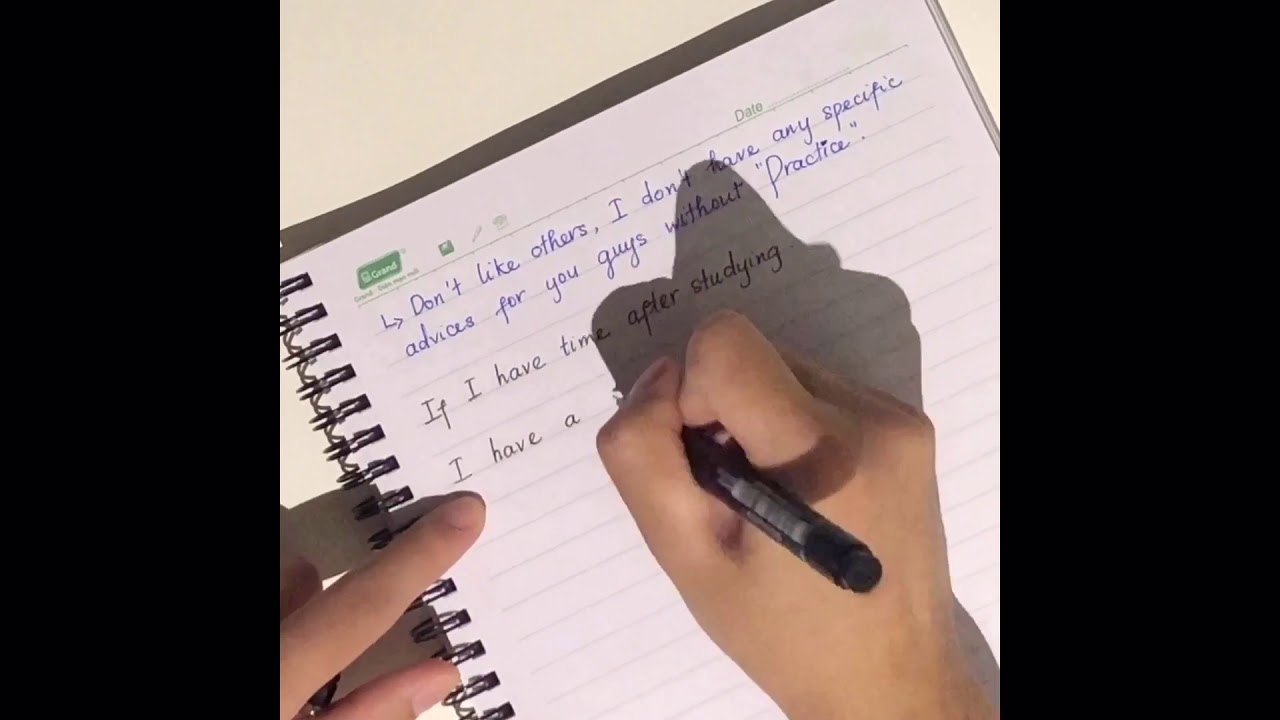 Date
Grand
↳ Don't like others, I don't have any specific
advices for you guys without "Practice".
If I have time after studying.
I have a